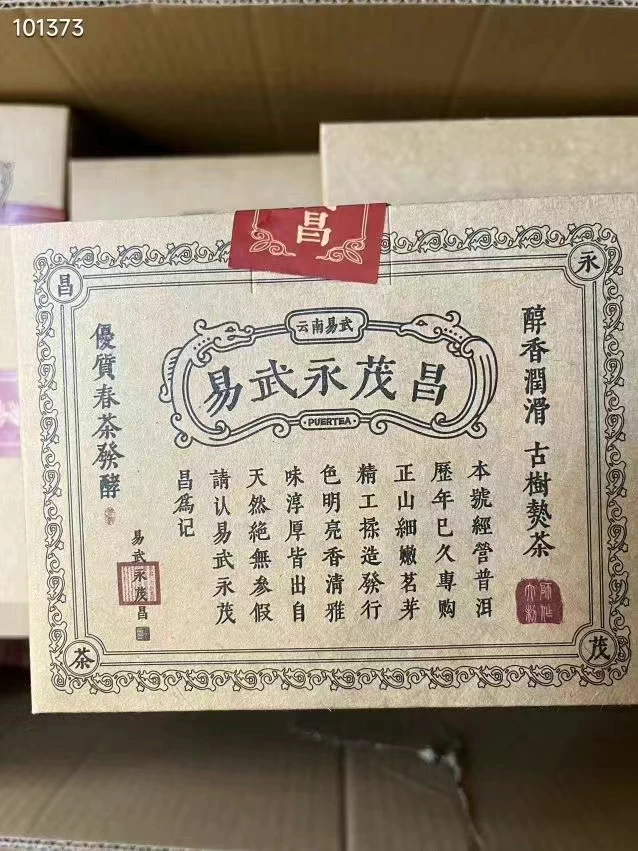 101373
昌
永
昌
云南易武
易武永茂昌
PUERTEA
醇香潤滑 古樹熟茶
本號經營普洱
歷年已久專购
正山細嫩茗芽
精工揉造發行
色明亮香清雅
味淳厚皆出自
天然絶無參假
請认易武永茂
昌爲记
優質春茶發酵
易武永茂昌
茂
茶